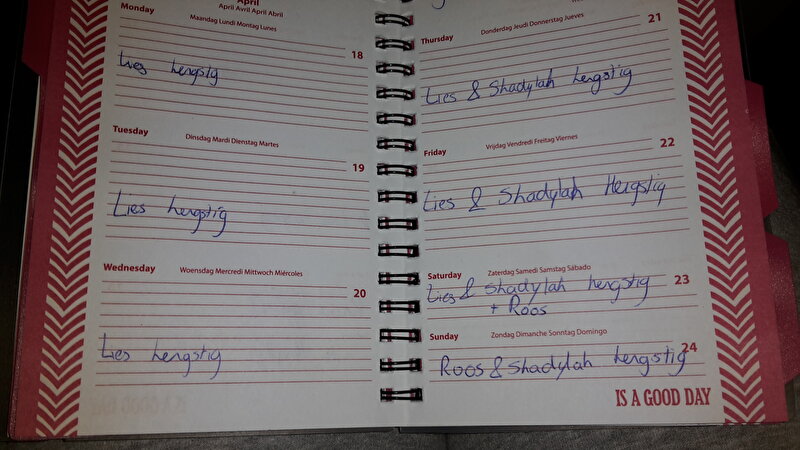 April
April Avril April Abril
Monday
Maandag Lundi Montag Lunes
18
Lies hengstig
Tuesday
Dinsdag Mardi Dienstag Martes
19
Lies hengstig
Wednesday
Woensdag Mercredi Mittwoch Miércoles
20
Lies hengstig
Thursday
Donderdag Jeudi Donnerstag Jueves
21
Lies & Shadylah hengstig
Friday
Vrijdag Vendredi Freitag Viernes
22
Lies & Shadylah Hengstig
Saturday
Zaterdag Samedi Samstag Sábado
23
Lies & Shadylah hengstig
+ Roos
Sunday
Zondag Dimanche Sonntag Domingo
24
Roos & Shadylah hengstig
IS A GOOD DAY